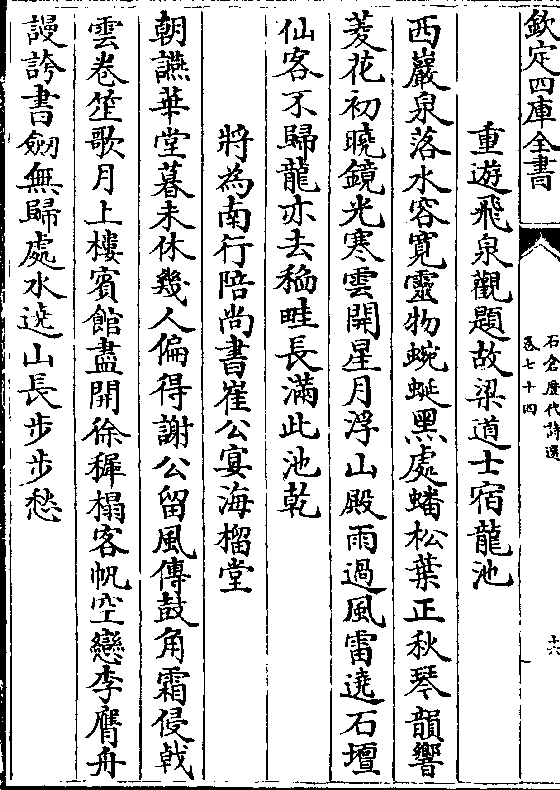 欽定四庫全書
石倉歷代詩選
卷七十四
十六
重遊飛泉觀題故梁道士宿龍池
西巖泉落水容寛靈物蜿蜒黒處蟠松葉正秋琴韻響
菱花初曉鏡光寒雲開星月浮山殿雨過風雷遶石壇
仙客不歸龍亦去稱畦長滿此池乾
將為南行陪尚書崔公宴海榴堂
朝讌華堂暮未休幾人偏得謝公留風傳鼓角霜侵戟
雲卷笙歌月上樓賓館盡開徐穉榻客帆空戀李膺舟
謾誇書劒無歸處水遶山長步步愁